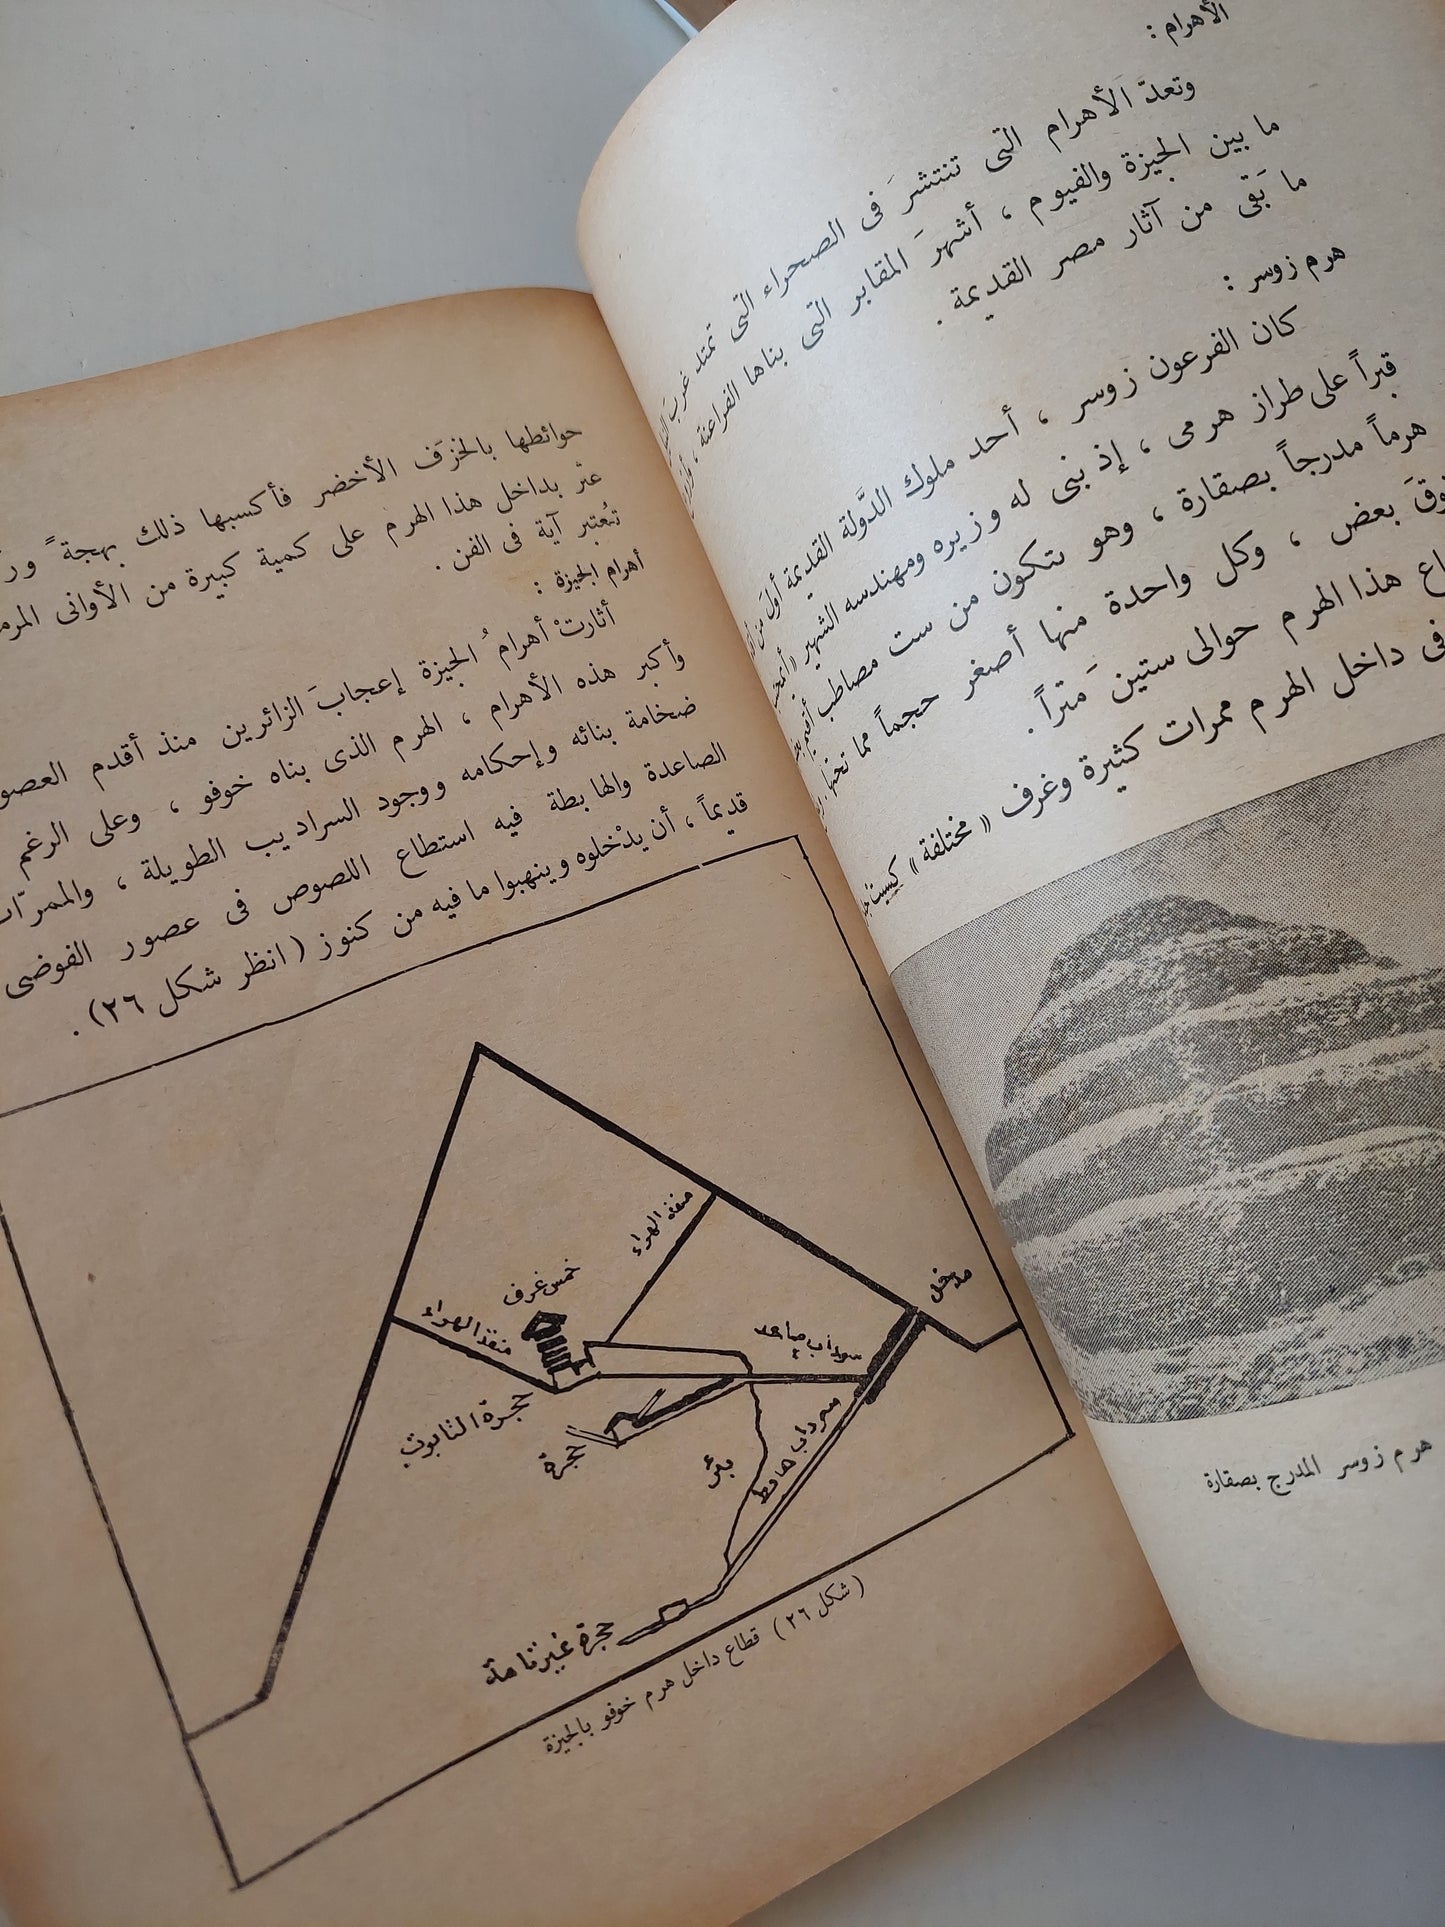 الأهرام :
وتعدّ الأهرام التى تنتشرَ فى الصحراء التى تمتد غربَ
ما بين الجيزة والفيوم ، أشهرَ المقابر التى بناها الفراعنة ،
ما بَقى من آثار مصر القديمة .
هرم زوسر :
كان الفرعون زوسر ، أحد ملوك الدَّولة القديمة أولَ من
قبراً على طراز هرمى ، إذ بنى له وزيره ومهندسه الشهير
هرماً مدرجاً بصقارة ، وهو يتكون من ست مصاطب أقيم
فوقَ بعض ، وكل واحدة منها أصغر حجماً مما تحتها .
هذا الهرم حوالى ستين مَتراً .
فى داخل الهرم ممرات كثيرة وغرف « مختلفة »
هرم زوسر المدرج بصقارة
حوائطها بالخزَف الأخضر فأكسبها ذلك بهجة ً
عثر بداخل هذا الهرم على كمية كبيرة من الأوانى
تُعتبر آية فى الفن .
أهرام الجيزة :
أثارتْ أهرامُ الجيزة إعجابَ الزائرين منذ أقدم
وأكبر هذه الأهرام ، الهرم الذى بناه خوفو ، وعلى الرغم
ضخامة بنائه وإحكامه ووجود السراديب الطويلة ، والممرّات
الصاعدة والهابطة فيه استطاع اللصوص فى عصور الفوضى
قديماً ، أن يدْخلوه وينهبوا ما فيه من كنوز ( انظر شكل ٢٦) .
منفذ الهواء
مدخل
خمس غرف
منفذ الهواء
سرداب صاعد
حجرة التابوت
حجرة
بئر
سرداب هابط
حجرة غير تامة
(شكل ٢٦) قطاع داخل هرم خوفو بالجيزة